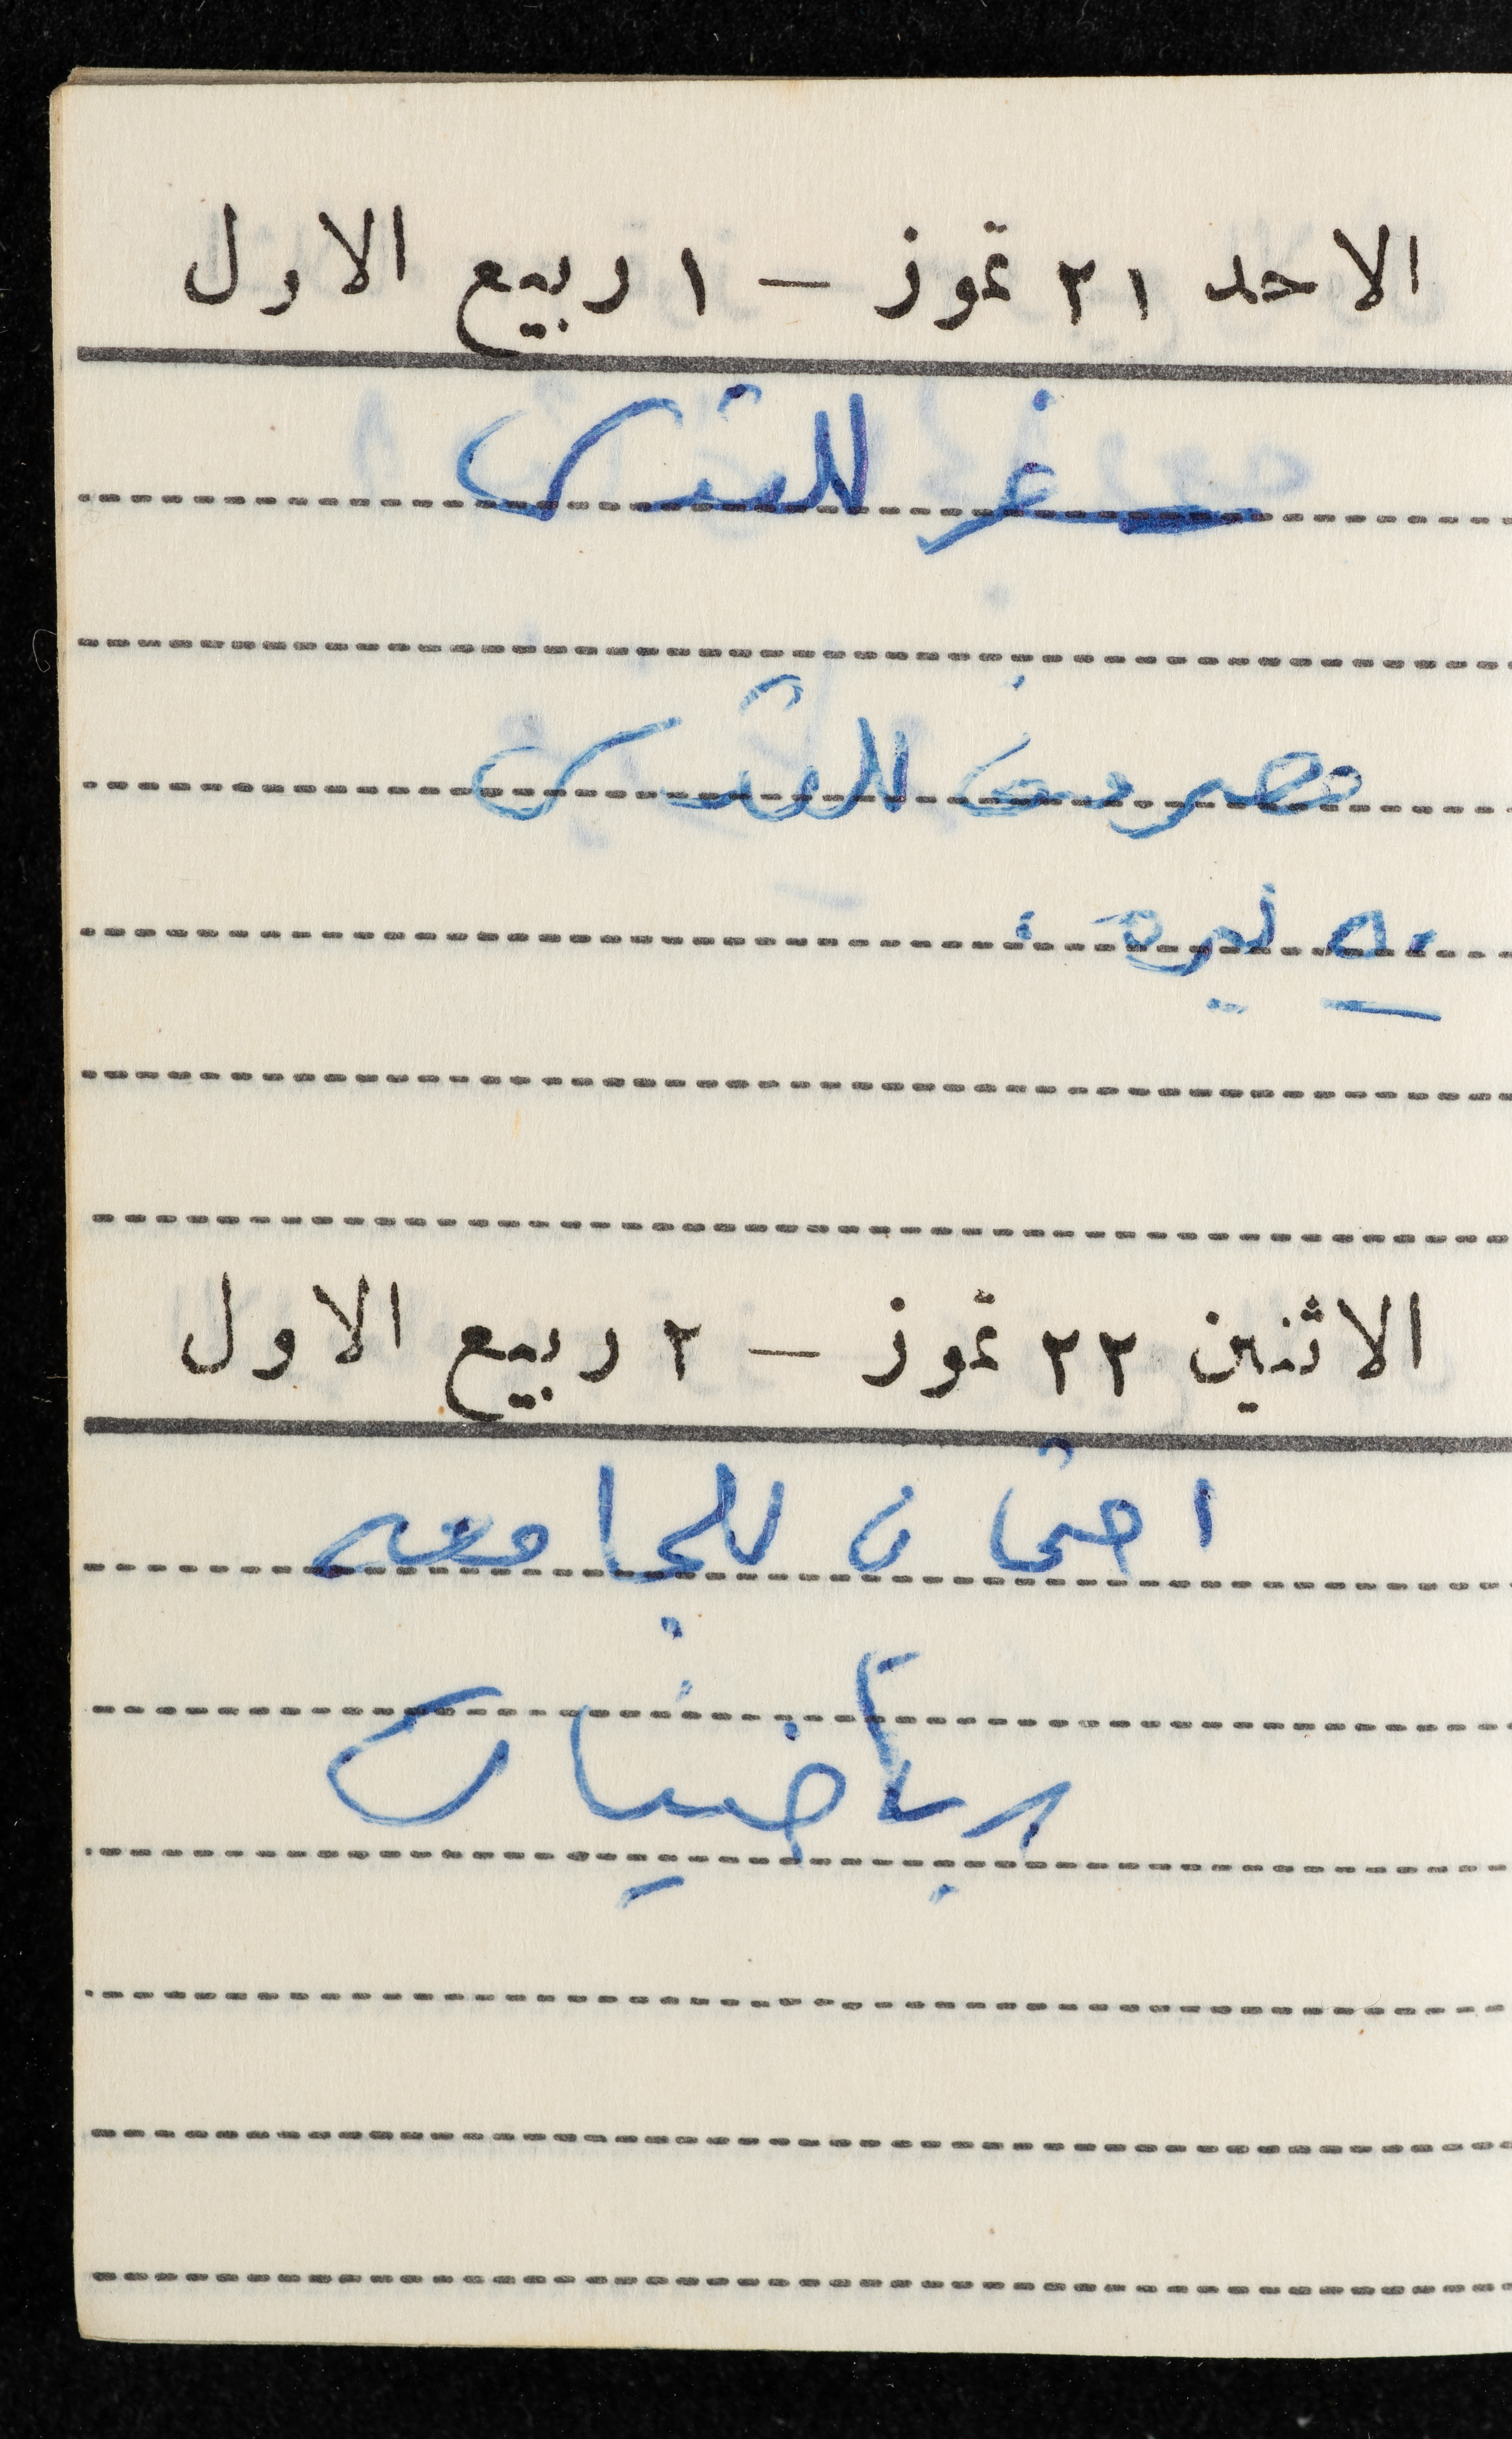 الاحد ٢١ تموز - ١ ربيع الاول
سفر للقدس
مصروف للقدس
٥٠ ليرة
الاثنين ٢٢ تموز - ٢ ربيع الاول
امتحان للجامعه
رياضيات